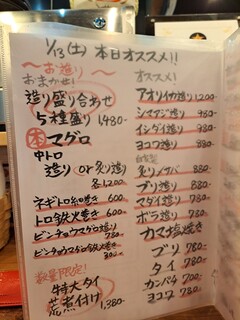 1/13(土) 本日オススメ!!
〜お造り〜
おまかせ!
造り盛り合わせ
5種盛り 1,480-
本マグロ
中トロ
造り or 炙り造り
各1,200
ネギトロ細巻き 600
トロ鉄火巻き 600
ビンチョウマグロ造り
780-
ビンチョウマグロ鉄火巻き
数量限定!
特大タイ
荒煮付け 1,380-
オススメ!
アオリイカ造り 1,200-
シマアジ造り 980-
イシダイ造り 980-
ヨコワ造り 880-
自家製
炙りメサバ 880-
ブリ造り 880-
マダイ造り 780-
ボラ造り 780-
カマ塩焼き
ブリ 780-
タイ 780-
カンパチ 700-
ヨコワ 780-